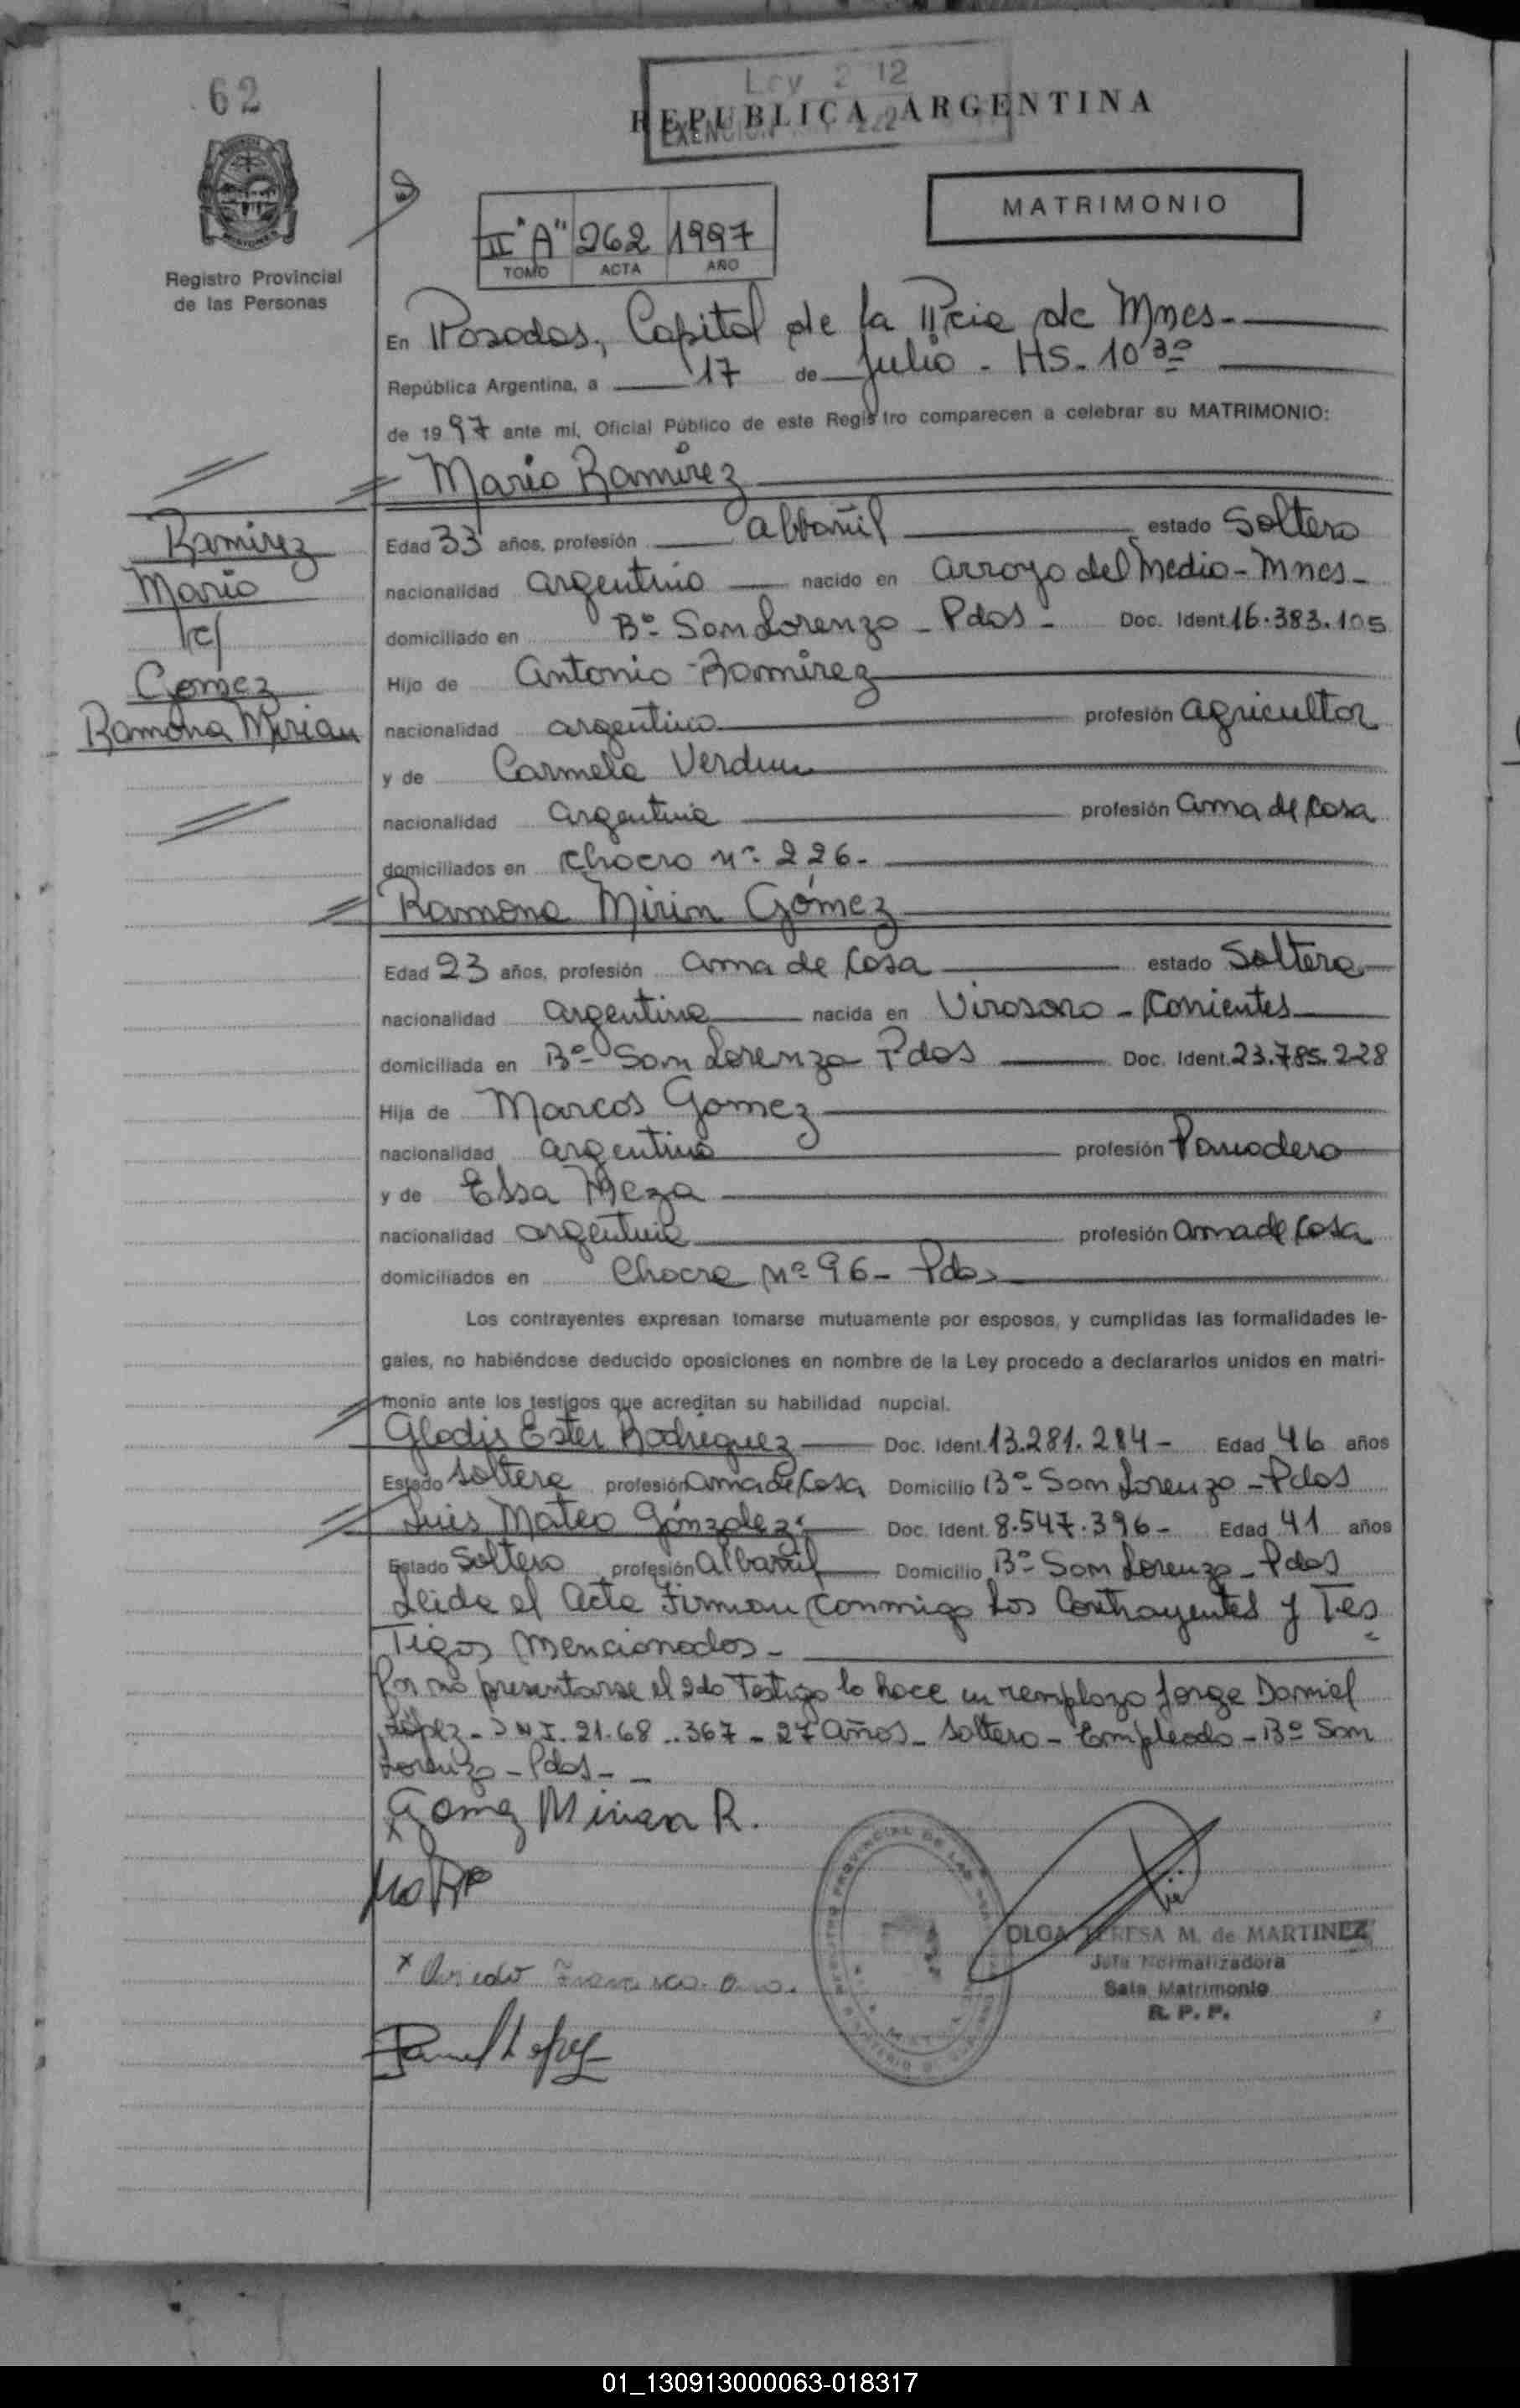 62
Ley 2 12
REPUBLICA ARGENTINA
EXENCION 222
MATRIMONIO
II "A" 262 1997
TOMO ACTA AÑO
Registro Provincial
de las Personas
En Posadas, Capital de la Pcia de Mnes.
República Argentina, a 17 de Julio - HS. 10³⁰
de 1997 ante mí, Oficial Público de este Registro comparecen a celebrar su MATRIMONIO:
Mario Ramírez
Ramirez
Mario
c/
Gomez
Ramona Mirian
Edad 33 años, profesión albañil estado Soltero
nacionalidad argentino nacido en Arroyo del Medio - Mnes -
domiciliado en Bº San Lorenzo - Pdas - Doc. Ident. 16.383.105
Hijo de Antonio Ramirez
nacionalidad argentino profesión agricultor
y de Carmela Verdun
nacionalidad argentina profesión ama de casa
domiciliados en Chacra nº 226.
Ramona Mirin Gómez
Edad 23 años, profesión ama de casa estado Soltera
nacionalidad argentina nacida en Virosoro - Corrientes
domiciliada en Bº San Lorenzo Pdas Doc. Ident. 23.785.228
Hija de Marcos Gomez
nacionalidad argentino profesión Panadero
y de Elsa Meza
nacionalidad argentina profesión ama de casa
domiciliados en Chacra Nº 96 - Pdas
Los contrayentes expresan tomarse mutuamente por esposos, y cumplidas las formalidades le-
gales, no habiéndose deducido oposiciones en nombre de la Ley procedo a declararlos unidos en matri-
monio ante los testigos que acreditan su habilidad nupcial.
Gladis Ester Rodriguez Doc. Ident. 13.281.284 - Edad 46 años
Estado soltera profesión ama de casa Domicilio Bº San Lorenzo - Pdas
Luis Mateo Gónzalez Doc. Ident. 8.547.396 - Edad 41 años
Estado Soltero profesión albañil Domicilio Bº San Lorenzo - Pdas
Leida el Acta Firman conmigo los Contrayentes y Tes
Tigos mencionados -
Por no presentarse el 2do Testigo lo hace en remplazo Jorge Daniel
López - DNI. 21.68 ..367 - 27 años - soltero - Empleado - Bº San
Lorenzo - Pdas -
Gomez Mirian R.
Daniel Lopez
OLGA TERESA M. de MARTINEZ
Jefa Normalizadora
Sala Matrimonio
R. P. P.
01_130913000063-018317